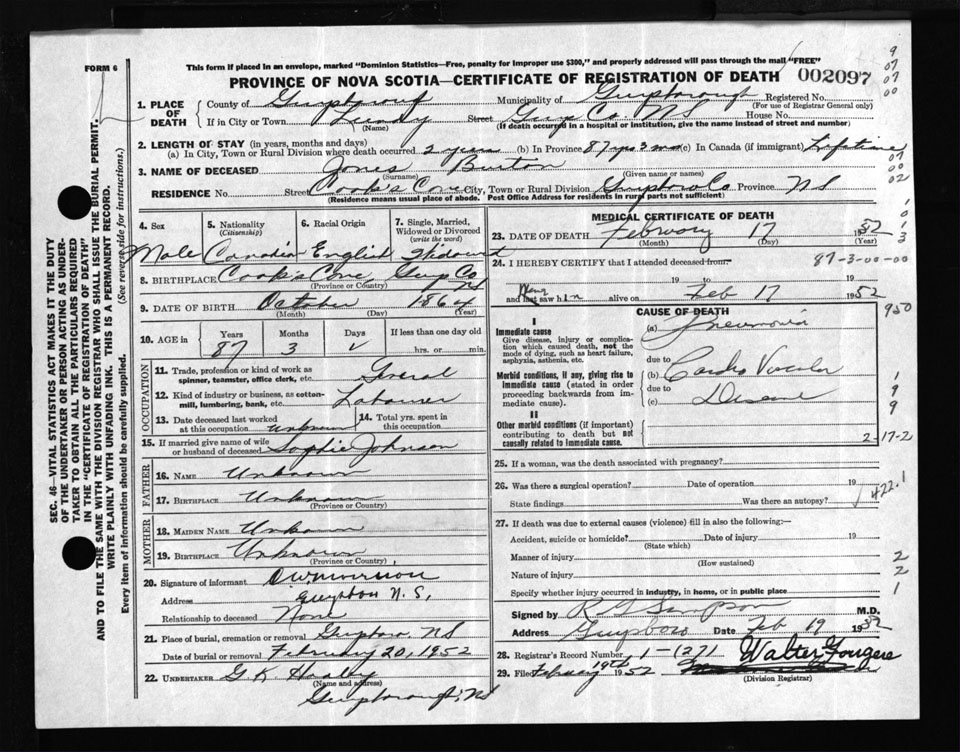 FORM 6
This form if placed in an envelope, marked "Dominion Statistics—Free, penalty for improper use $300," and properly addressed will pass through the mail "FREE"
PROVINCE OF NOVA SCOTIA—CERTIFICATE OF REGISTRATION OF DEATH 002097
9
07
07
00
1. PLACE OF DEATH County of Guysborough Municipality of Guysborough Registered No.
(For use of Registrar General only)
If in City or Town Lundy Street Guys Co. NS House No.
(Name) (If death occurred in a hospital or institution, give the name instead of street and number)
2. LENGTH OF STAY (in years, months and days)
(a) In City, Town or Rural Division where death occurred 2 years (b) In Province 87 yrs 3 mos (c) In Canada (if immigrant) Lifetime
07
00
02
3. NAME OF DECEASED Jones Burton
(Surname) (Given name or names)
RESIDENCE No. Street Cook's Cove City, Town or Rural Division Guysboro Co Province NS
(Residence means usual place of abode. Post Office Address for residents in rural parts not sufficient)
4. Sex 5. Nationality 6. Racial Origin 7. Single, Married, Widowed or Divorced
(Citizenship) (write the word)
Male Canadian English Widowed
8. BIRTHPLACE Cook's Cove Guys Co NS
(Province or Country)
9. DATE OF BIRTH October 1864
(Month) (Day) (Year)
10. AGE in Years Months Days If less than one day old
87 3 hrs. or min.
OCCUPATION
11. Trade, profession or kind of work as spinner, teamster, office clerk, etc. General
12. Kind of industry or business, as cotton-mill, lumbering, bank, etc. Labourer
13. Date deceased last worked at this occupation Unknown 14. Total yrs. spent in this occupation
15. If married give name of wife or husband of deceased Sophie Johnson
FATHER
16. NAME Unknown
17. BIRTHPLACE Unknown
(Province or Country)
MOTHER
18. MAIDEN NAME Unknown
19. BIRTHPLACE Unknown
(Province or Country)
20. Signature of informant
Address N.S.
Relationship to deceased None
21. Place of burial, cremation or removal Guysboro, NS
Date of burial or removal February 20, 1952
22. UNDERTAKER G. K.
(Name and address)
Guysborough, NS
MEDICAL CERTIFICATE OF DEATH
23. DATE OF DEATH February 17 1952
(Month) (Day) (Year)
1
0
1
3
24. I HEREBY CERTIFY that I attended deceased from:— 87-3-00-00
19 to 19
and last saw him alive on Feb 17 1952
CAUSE OF DEATH
950
I
Immediate cause (a) Pneumonia
Give disease, injury or complication which caused death, not the mode of dying, such as heart failure, asphyxia, asthenia, etc.
due to
Morbid conditions, if any, giving rise to immediate cause (stated in order proceeding backwards from immediate cause). (b) Cardio Vascular
due to
(c) Disease
1
9
9
II
Other morbid conditions (if important) contributing to death but not causally related to immediate cause.
2-17-2
25. If a woman, was the death associated with pregnancy?
26. Was there a surgical operation? Date of operation 19
State findings Was there an autopsy? 422.1
27. If death was due to external causes (violence) fill in also the following:—
Accident, suicide or homicide? Date of injury 19
(State which)
Manner of injury 2
(How sustained)
Nature of injury 2
Specify whether injury occurred in industry, in home, or in public place 1
Signed by R G Simpson M.D.
Address Guysboro Date Feb 19 1952
28. Registrar's Record Number 1-(27) Walter Fougere
29. Filed February 19th 1952
(Division Registrar)
SEC. 46 VITAL STATISTICS ACT MAKES IT THE DUTY OF THE UNDERTAKER OR PERSON ACTING AS UNDERTAKER TO OBTAIN ALL THE PARTICULARS REQUIRED IN THE "CERTIFICATE OF REGISTRATION OF DEATH" AND TO FILE THE SAME WITH THE DIVISION REGISTRAR WHO SHALL ISSUE THE BURIAL PERMIT.
WRITE PLAINLY WITH UNFADING INK. THIS IS A PERMANENT RECORD.
Every item of information should be carefully supplied. (See reverse side for instructions.)